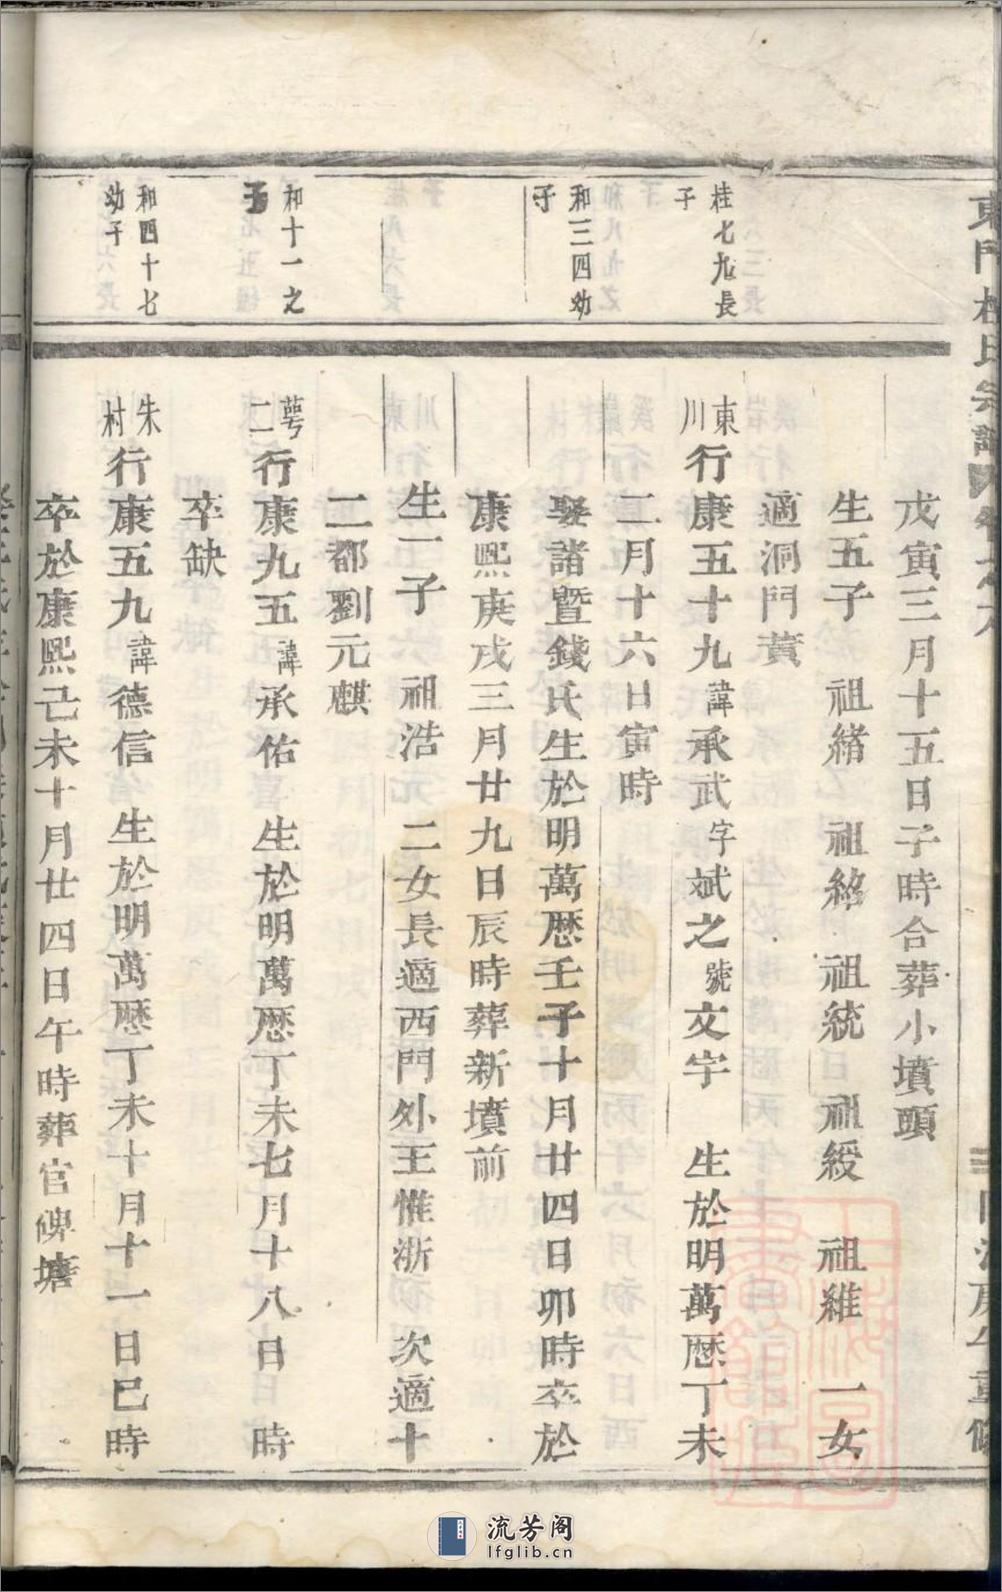 東門杜氏宗譜
卷之六
戊寅三月十五日子時合葬小墳頭
生五子 祖緒 祖綌 祖統 祖綬 祖維 一女
適洞門黃
桂七九長
子
東川行康五十九諱承武字斌之號文宇 生於明萬歷丁未
二月十六日寅時
娶諸暨錢氏生於明萬歷壬子十月廿四日卯時卒於
康熙庚戌三月廿九日辰時葬新墳前
生一子 祖浩 二女長適西門外王惟浙 次適十
二都劉元麒
和三四幼
子
和十一之
子
二行康九五諱承佑 生於明萬歷丁未七月十八日 時
卒缺
和四十七
幼子
朱村行康五九諱德信 生於明萬歷丁未十月十一日巳時
卒於康熙己未十月廿四日午時葬官碑塘
流芳阁
lfglib.cn